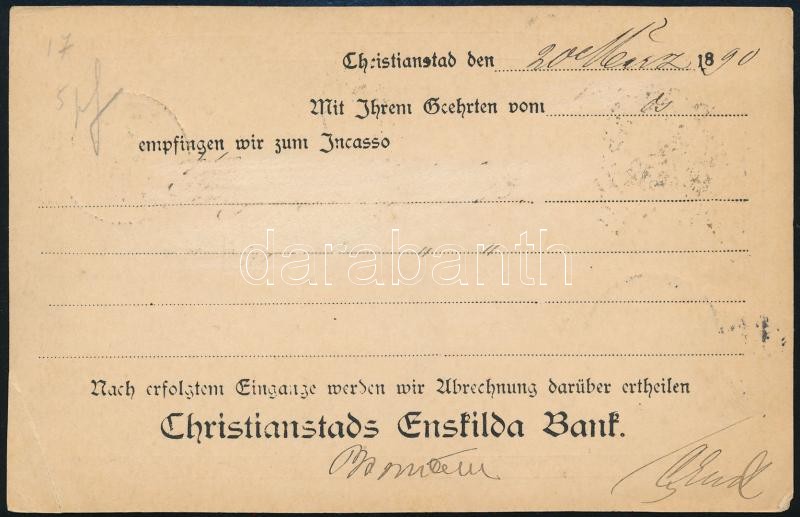 17
Christianstad den 20 März 1890
5 pf
Mit Ihrem Geehrten vom ds
empfingen wir zum Incasso
darabanth
Nach erfolgtem Eingange werden wir Abrechnung darüber ertheilen
Christianstads Enskilda Bank.